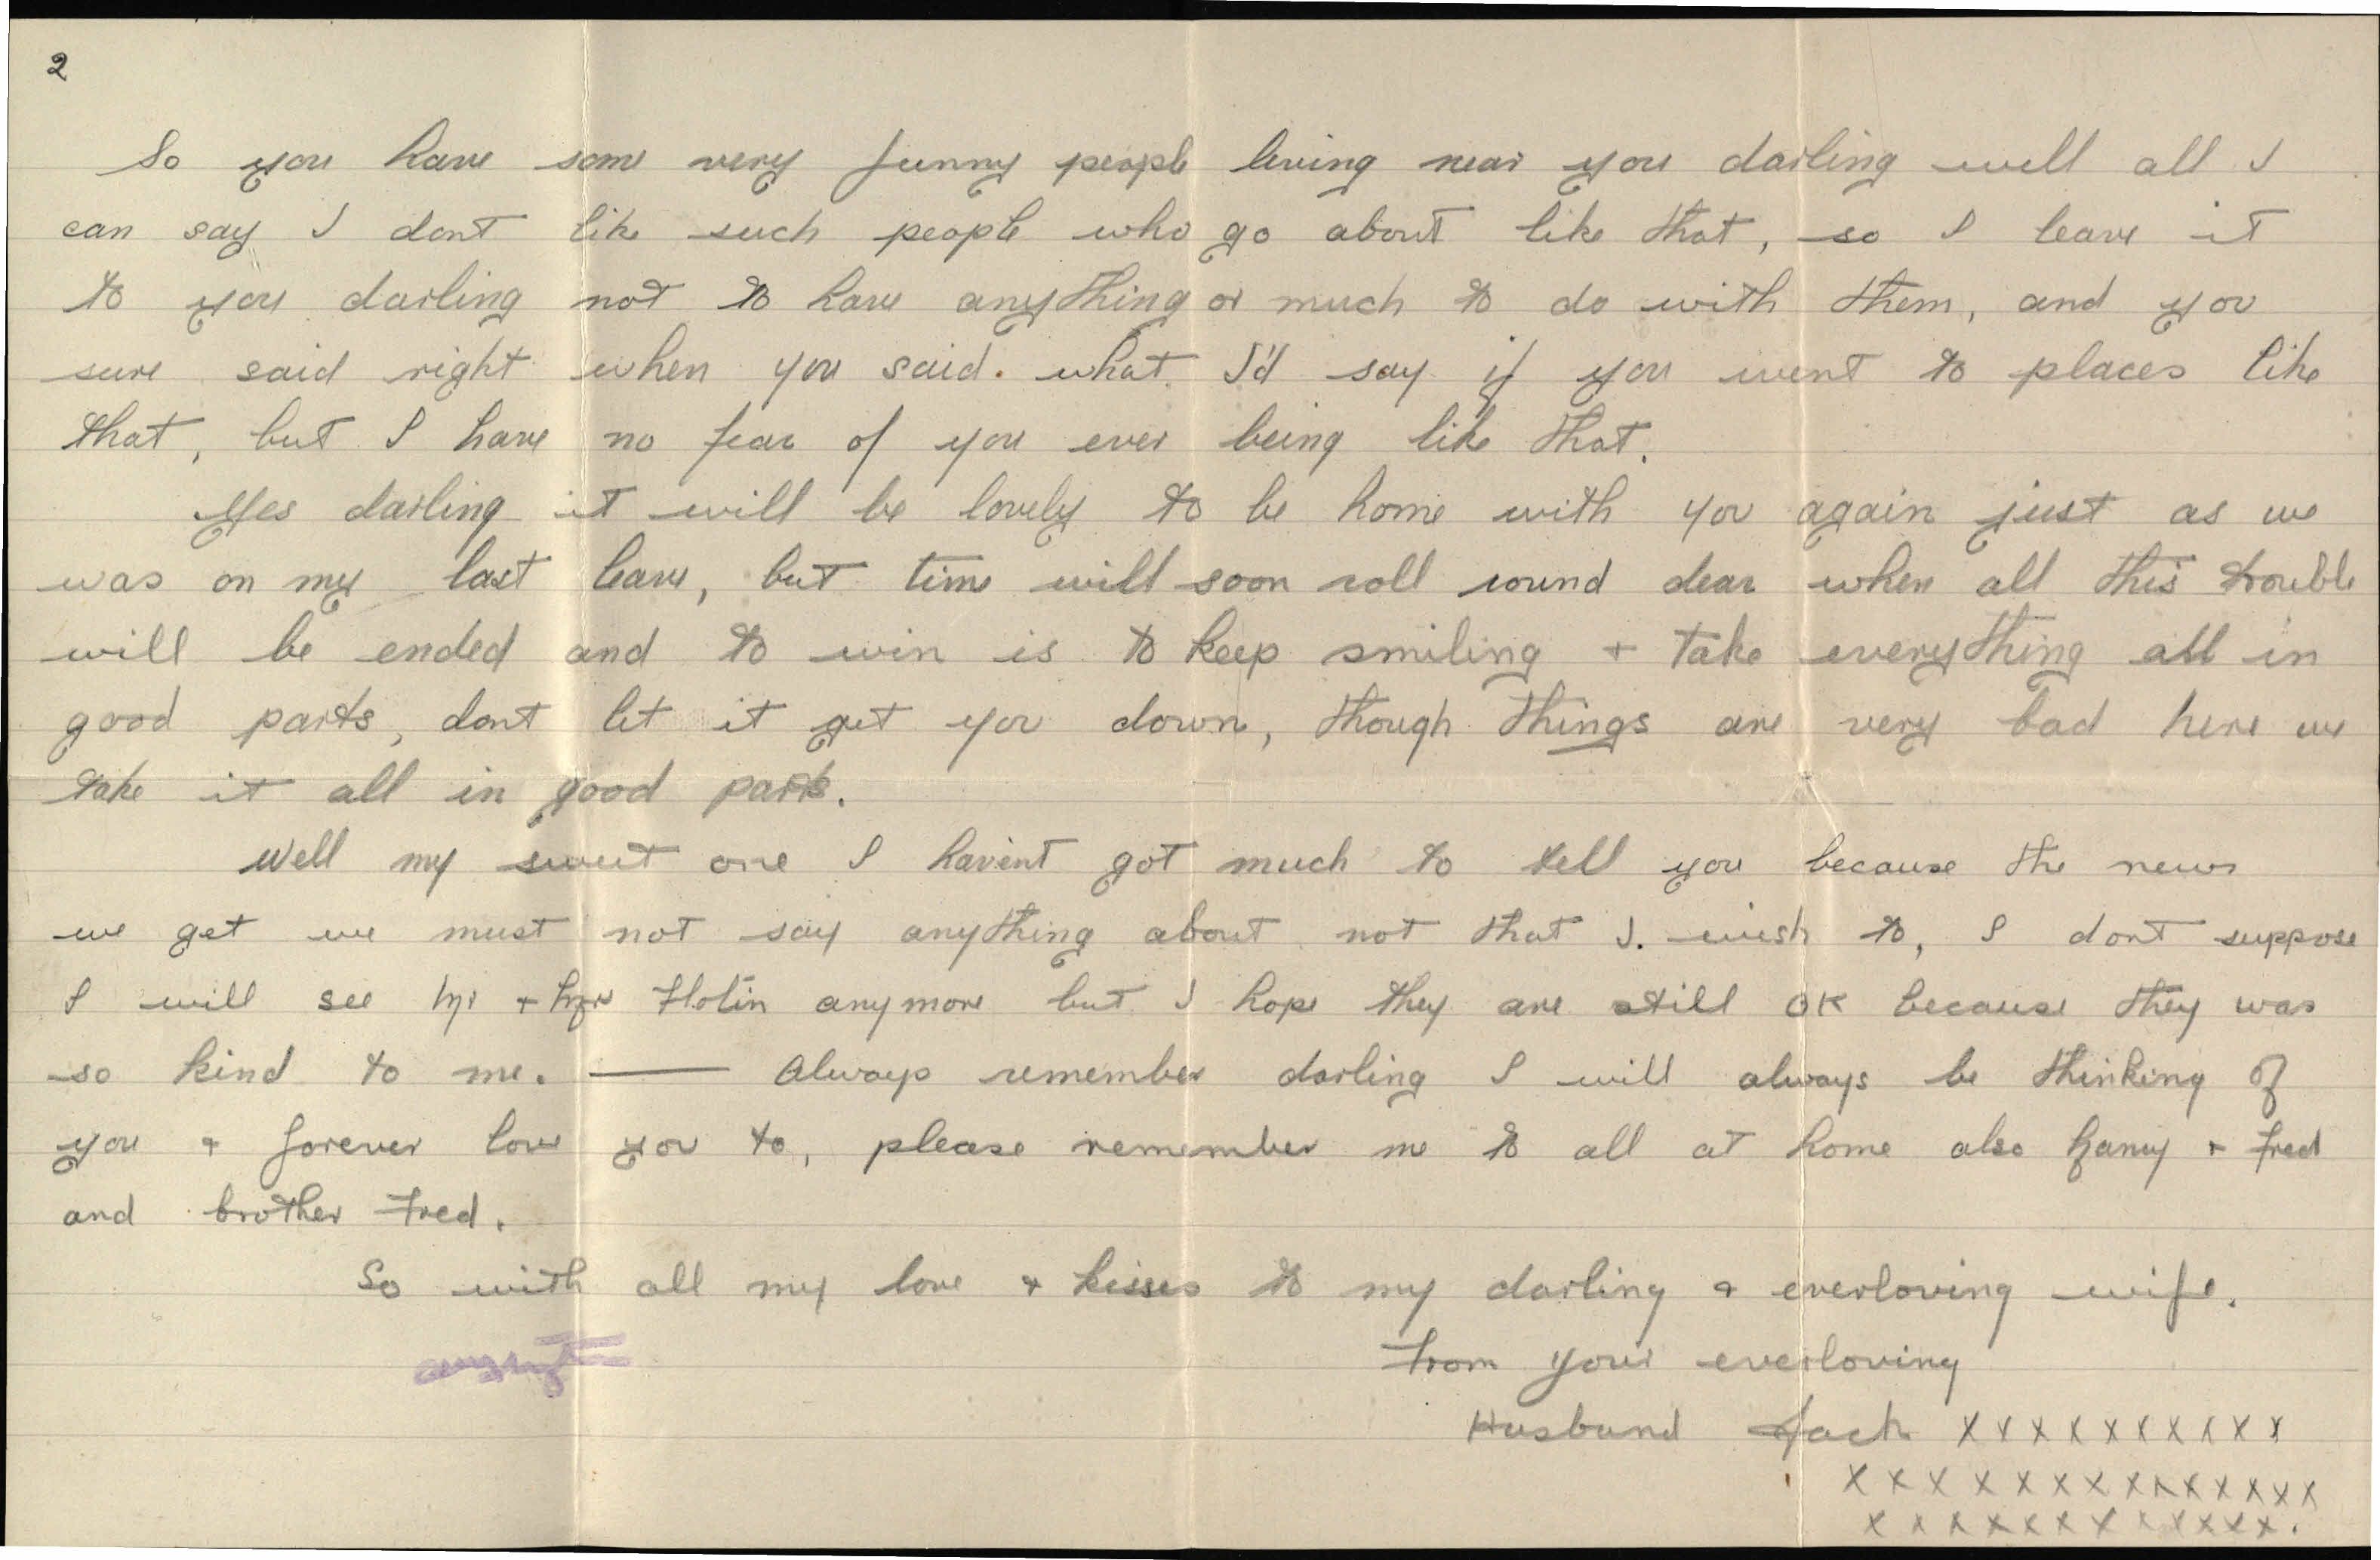 2
So you have some very funny people living near you darling well all I
can say I dont like such people who go about like that, so I leave it
to you darling not to have anything or much to do with them, and you
sure said right when you said. what I'd say if you went to places like
that, but I have no fear of you ever being like that.
Yes darling it will be lovely to be home with you again just as we
was on my last leave, but time will soon roll round dear when all this trouble
will be ended and to win is to keep smiling + take everything all in
good parts, dont let it get you down, though things are very bad here we
take it all in good part.
Well my sweet one I havent got much to tell you because the news
we get we must not say anything about not that I. wish to, I dont suppose
I will see Mr + Mrs anymore but I hope they are still OK because they was
so kind to me. — Always remember darling I will always be thinking of
you + forever love you to, please remember me to all at home also + Fred
and brother Fred.
So with all my love + kisses to my darling + everloving wife.
From your everloving
Husband Jack x x x x x x x x x x
x x x x x x x x x x x x x x
x x x x x x x x x x x x.